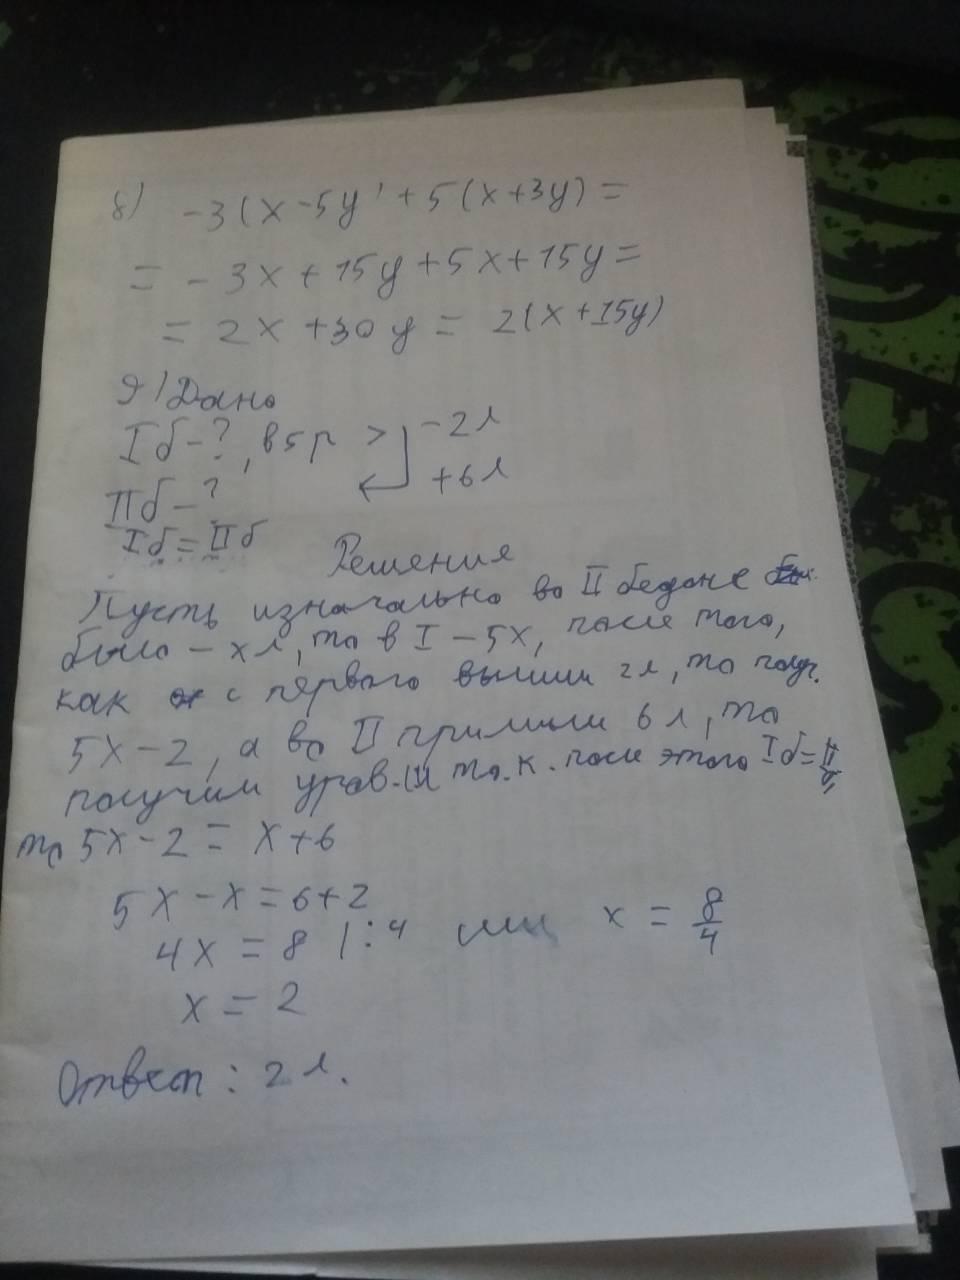 8) -3(x-5y)+5(x+3y)=
= -3x+15y+5x+15y=
= 2x+30y= 2(x+15y)
9) Дано
I б-?, в 5 р > -2л
II б-? +6л
I б = II б
Решения
Пусть изначально во II бедоне
было - x л, то в I - 5x, после того,
как с первого вылили 2л, то получ.
5x-2, а во II прилили 6 л, то
получим урав. т.к. после этого I б = II б,
то 5x-2 = x+6
5x-x=6+2
4x = 8 |:4 или x = 8/4
x = 2
Ответ: 2 л.